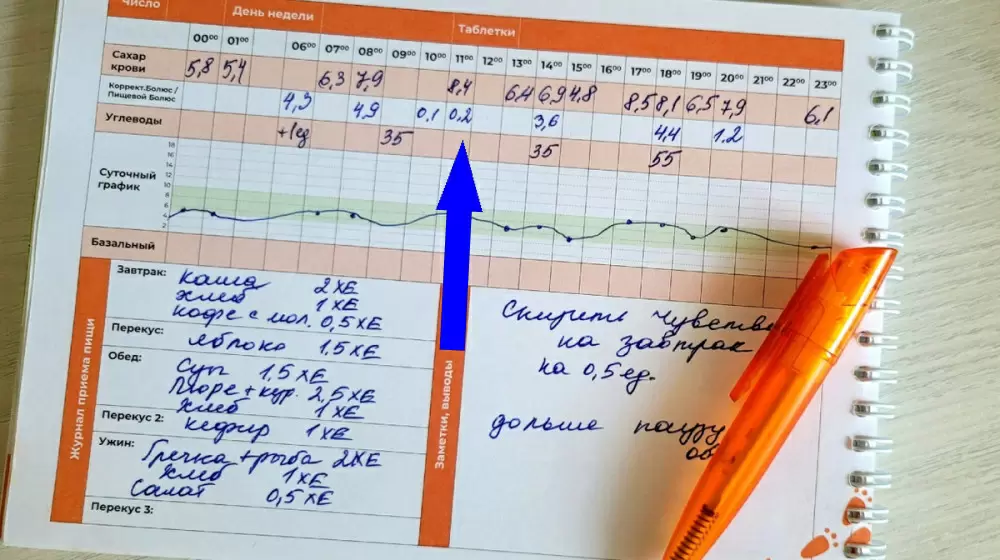 Число День недели Таблетки
00⁰⁰ 01⁰⁰ 06⁰⁰ 07⁰⁰ 08⁰⁰ 09⁰⁰ 10⁰⁰ 11⁰⁰ 12⁰⁰ 13⁰⁰ 14⁰⁰ 15⁰⁰ 16⁰⁰ 17⁰⁰ 18⁰⁰ 19⁰⁰ 20⁰⁰ 21⁰⁰ 22⁰⁰ 23⁰⁰
Сахар крови 5,8 5,4 6,3 7,9 8,4 6,4 6,9 4,8 8,5 8,1 6,5 7,9 6,1
Коррект.Болюс / Пищевой Болюс 4,3 4,9 0,1 0,2 3,6 4,4 1.2
Углеводы +1ед 35 35 55
Суточный график
18
16
14
12
10
8
6
4
2
Базальный
Журнал приема пищи
Завтрак: Каша 2ХЕ
Хлеб 1ХЕ
Кофе с мол. 0,5ХЕ
Перекус: Яблоко 1.5ХЕ
Обед: Суп 1,5ХЕ
Пюре+кур. 2,5ХЕ
Хлеб 1ХЕ
Перекус 2: Кефир 1ХЕ
Ужин: Гречка+рыба 2ХЕ
Хлеб 1ХЕ
Салат 0,5ХЕ
Перекус 3:
Заметки, выводы
на завтрак
на 0,5ед.
дольше паузу